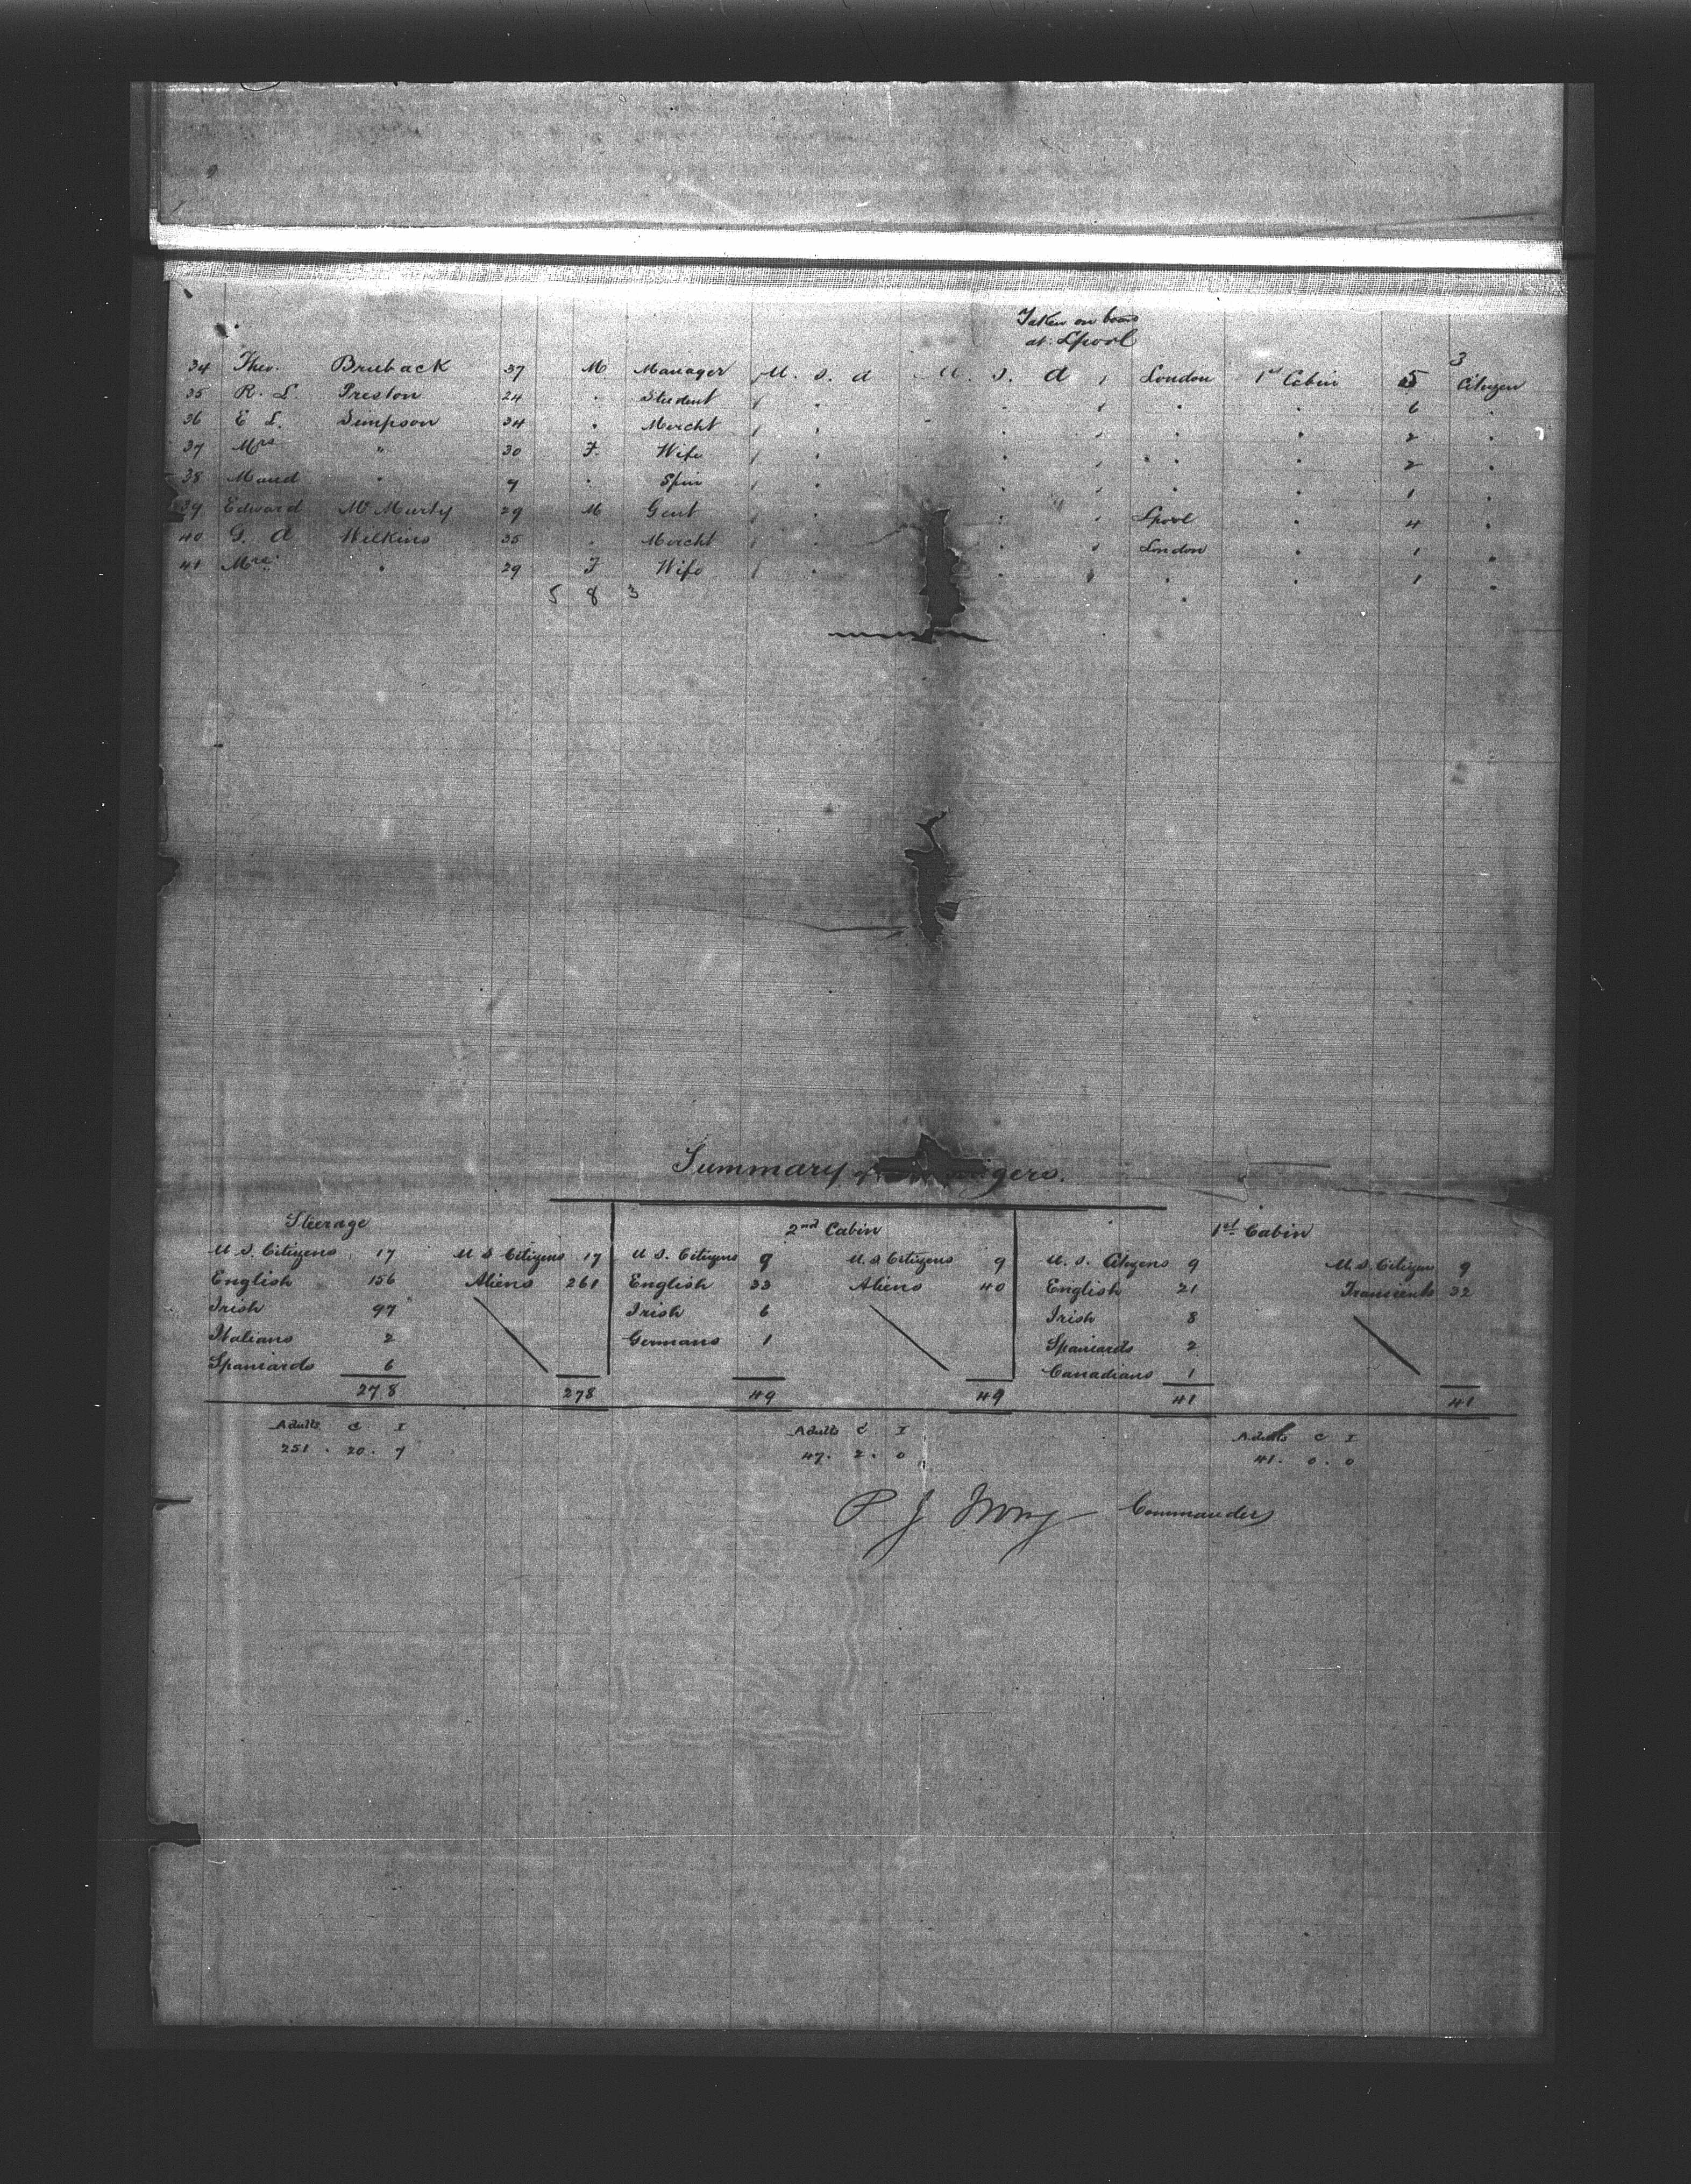 Taken on board
at Lpool
3
34 Theo. Bruback 37 M Manager U. S. A U. S. A " London 1st Cabin 5 Citizen
35 R. L. Preston 24 " Student " " " " " 6 "
36 E L. Simpson 34 " Mercht " " " " " 2 "
37 Mrs " 30 F. Wife " " " " " 2 "
38 Maud " 9 " Spin " " " " " 1 "
39 Edward McMurty 29 M Gent " " " Lpool " 4 "
40 G. A Wilkins 35 " Mercht " " " London " 1 "
41 Mrs " 29 F Wife " " " " " 1 "
5 8 3
Summary of
Steerage 2nd Cabin 1st Cabin
U S. Citizens 17 U S Citizens 17 U S. Citizens 9 U. S Citizens 9 U. S. Citizens 9 U S. Citizens 9
English 156 Aliens 261 English 33 Aliens 40 English 21 Transients 32
Irish 97 Irish 6 Irish 8
Italians 2 Germans 1 Spaniards 2
Spaniards 6 Canadians 1
278 278 49 49 41 41
Adults C I Adults C I Adults C I
251 . 20 . 7 47. 2. 0 41. 0. 0
P J Commander